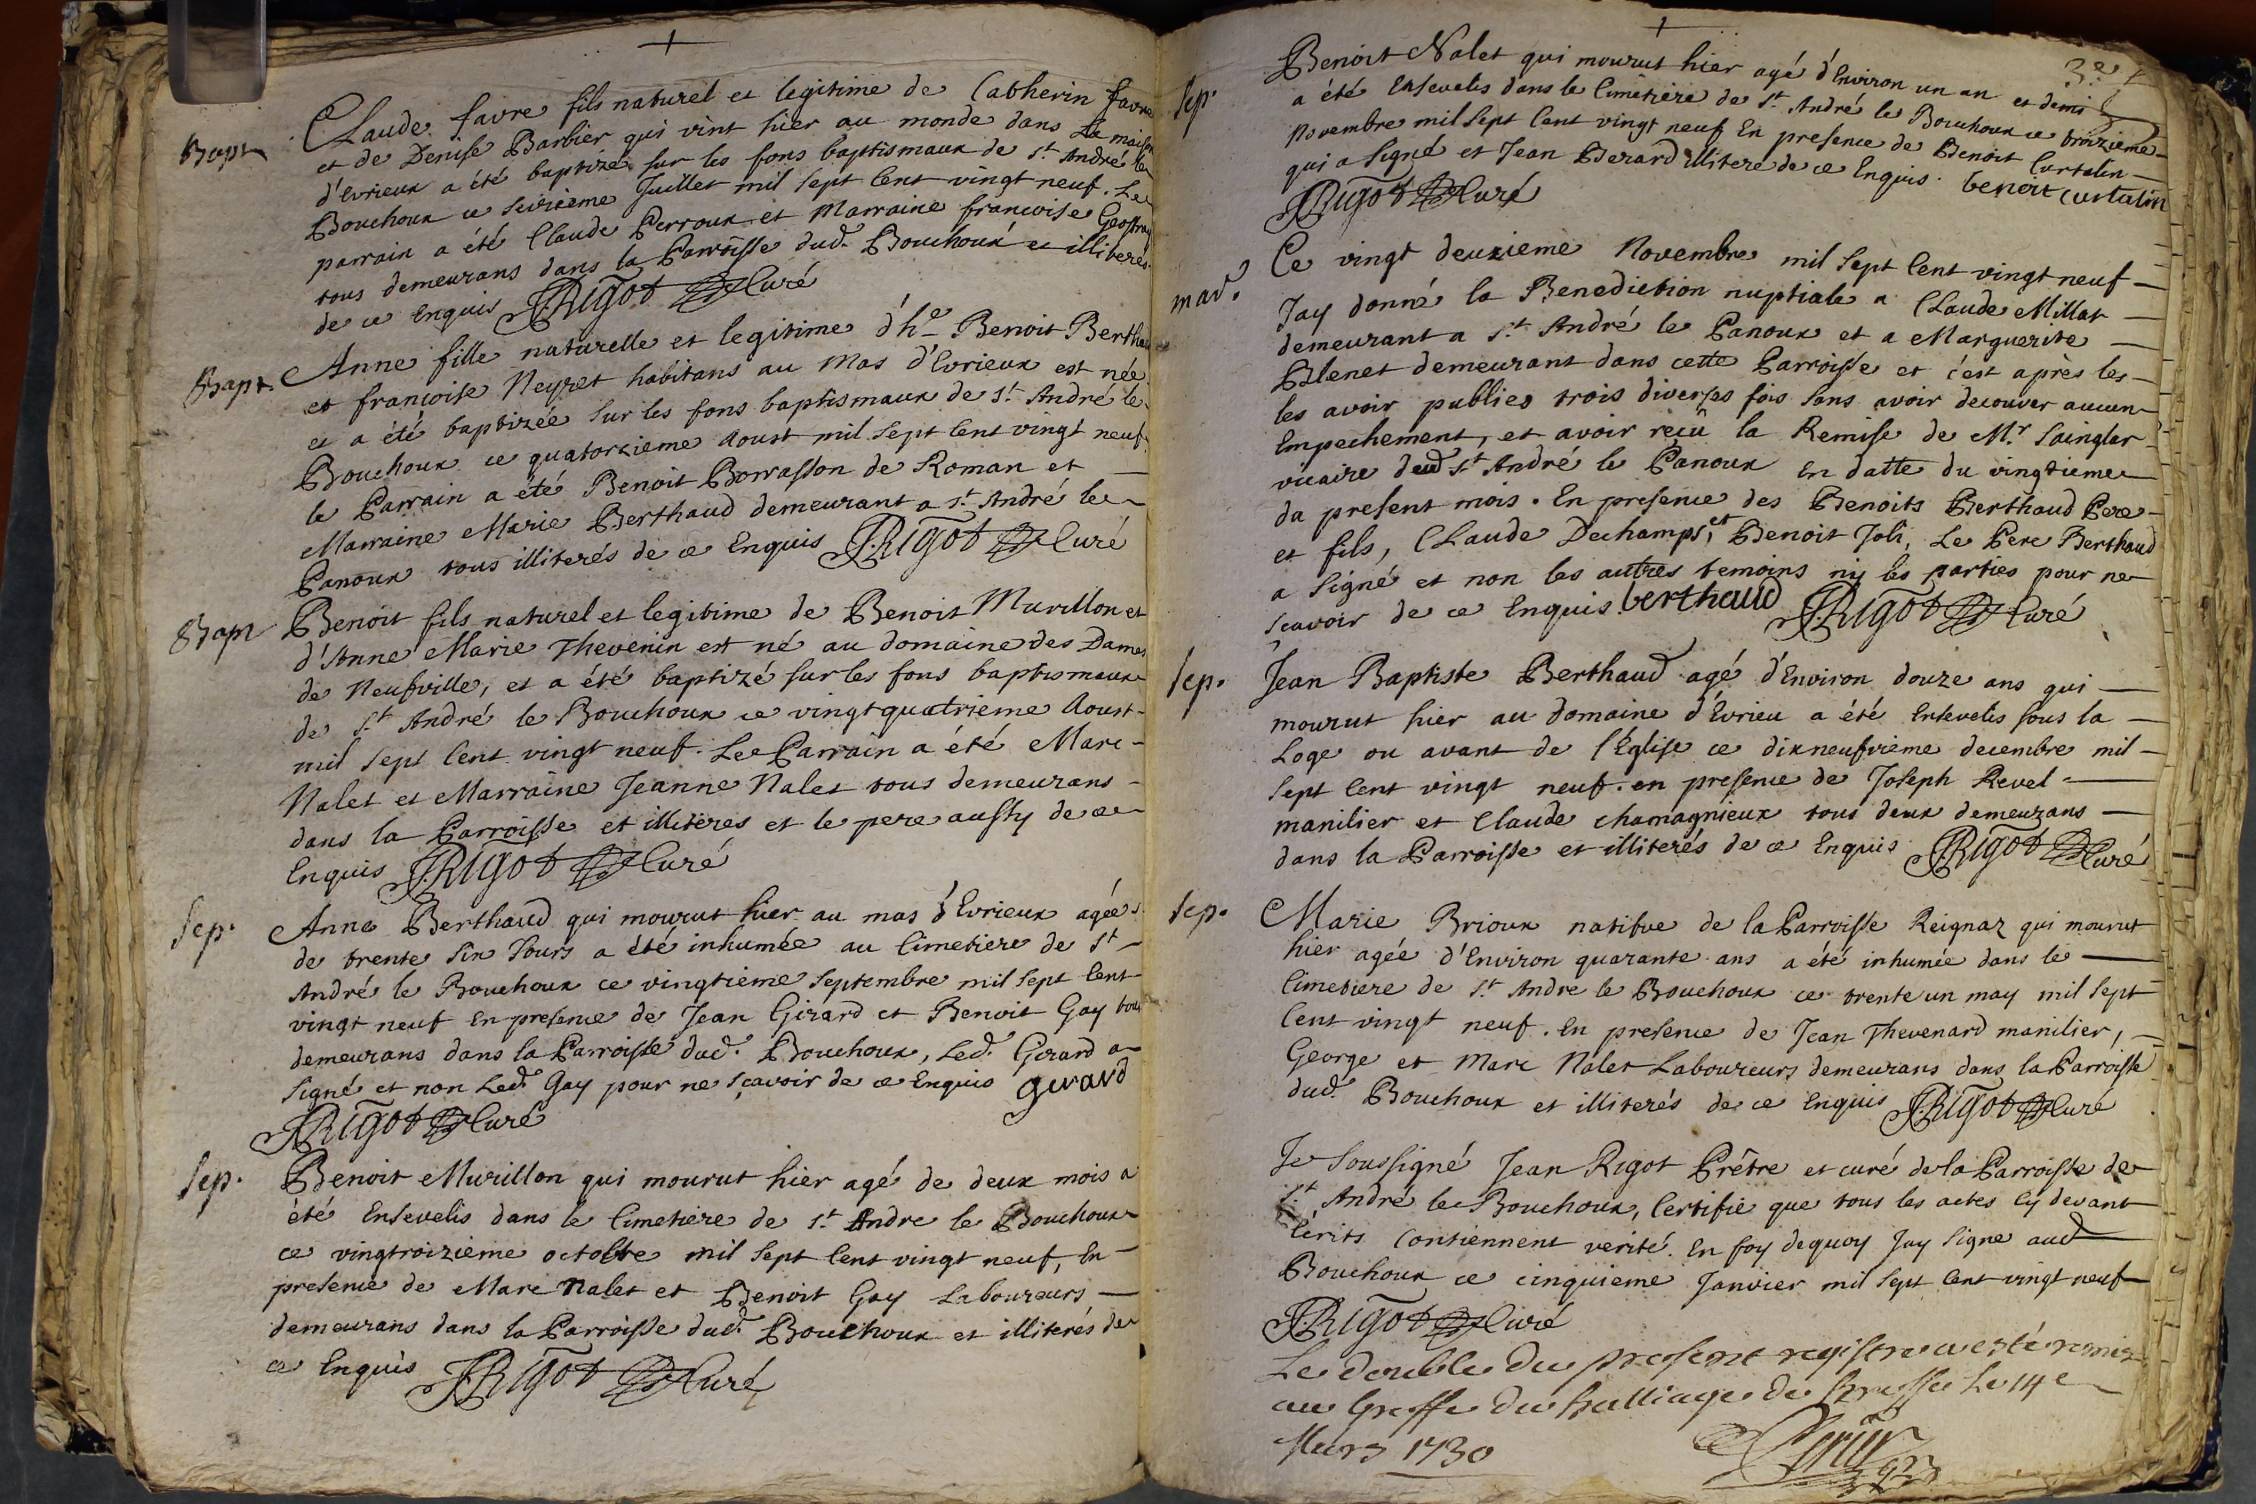 Bapt
Claude favre fils naturel et legitime de Catherin favre
et de Denise Barbier qui vint hier au monde dans la maison
d'Evrieux a été baptizé sur les fons baptismaux de St André le
Bouchoux ce seizieme Juillet mil sept Cent vingt neuf. Le
parrain a été Claude Perroux et Marraine francoise Geoffray
tous demeurans dans la Parroisse dud. Bouchoux et illiterés
de ce Enquis JRigot Curé
Bapt.
Anne fille naturelle et legitime d'he Benoit Berthaud
et francoise Neyret habitans au Mas d'Evrieux est née
et a été baptizée sur les fons baptismaux de St. André le
Bouchoux ce quatorzieme Aoust mil sept Cent vingt neuf.
le Parrain a été Benoit Borrasson de Roman et
Marraine Marie Berthaud demeurant a St. André le
Panoux tous illiterés de ce Enquis JRigot Curé
Bapt
Benoit fils naturel et legitime de Benoit Murillon et
d'Anne Marie Thevenin est né au domaine des Dames
de Neufville, et a été baptizé sur les fons baptismaux
de St. André le Bouchoux ce vingtquatrieme Aoust
mil sept Cent vingt neuf. Le Parrain a été Marc
Nalet et Marraine Jeanne Nalet tous demeurans
dans la Parroisse et illiterés et le pere aussy de ce
Enquis JRigot Curé
Sep.
Anne Berthaud qui mourut hier au mas d'Evrieux agée
de trente six Jours a été inhumée au Cimetiere de St
André le Bouchoux ce vingtieme Septembre mil sept Cent
vingt neuf En presence de Jean Girard et Benoit Gay tous
demeurans dans la Parroisse dud. Bouchoux, Led. Girard a
signé et non Led. Gay pour ne sçavoir de ce Enquis girard
JRigot Curé
Sep.
Benoit Murillon qui mourut hier agé de deux mois a
été Ensevelis dans le Cimetiere de St. Andre le Bouchoux
ce vingtroizieme octobre mil sept Cent vingt neuf, En
presence de Marc Nalet et Benoit Gay Laboureurs
demeurans dans la Parroisse dud. Bouchoux et illiterés de
ce Enquis JRigot Curé
3e
Sep.
Benoit Nalet qui mourut hier agé d'Environ un an et demi
a été Ensevelis dans le Cimetiere de St. André le Bouchoux ce troizieme
Novembre mil sept Cent vingt neuf En presence de Benoit Curtelin
qui a signé et Jean Berard illiteré de ce Enquis. benoit curtalin
JRigot Curé
mar.
Ce vingt deuxieme Novembre mil sept Cent vingt neuf
Jay donné la Benediction nuptiale a Claude Millat
demeurant a St. André le Panoux et a Marguerite
Blenet demeurant dans cette Parroisse et c'est après les
les avoir publies trois diverses fois sans avoir decouver aucun
Empechement, et avoir reçû la Remise de Mr. Saingler
vicaire dud St André le Panoux En datte du vingtieme
da present mois. En presence des Benoits Berthaud Pere
et fils, Claude Dechamps, et Benoit Joli, Le Pere Berthaud
a signé et non les autres temoins ny les parties pour ne
scavoir de ce Enquis. berthaud JRigot Curé
Sep.
Jean Baptiste Berthaud agé d'Environ douze ans qui
mourut hier au domaine d'Evrieu a été Ensevelis sous la
Loge ou avant de l'Église ce dixneufvieme decembre mil
sept Cent vingt neuf. en presence de Joseph Revel
manilier et Claude chamagnieux tous deux demeurans
dans la Parroisse et illiterés de ce Enquis JRigot Curé
Sep.
Marie Brioux natifve de la Parroisse Reignaz qui mourut
hier agée d'Environ quarante ans a été inhumée dans le
Cimetiere de St. Andre le Bouchoux ce trente un may mil sept
Cent vingt neuf. En presence de Jean Thevenard manilier,
George et Marc Nalet Laboureurs demeurans dans la Parroisse
dud. Bouchoux et illiterés de ce Enquis JRigot Curé
Je soussigné Jean Rigot Prêtre et curé de la Parroisse de
St André le Bouchoux, Certifie que tous les actes Cy devant
Ecrits contiennent verité. En foy dequoy Jay signe aud
Bouchoux ce cinquieme Janvier mil sept Cent vingt neuf
JRigot Curé
Le double du present registre a esté remis
au Greffe du balliage de bresse Le 14e
Mars 1730